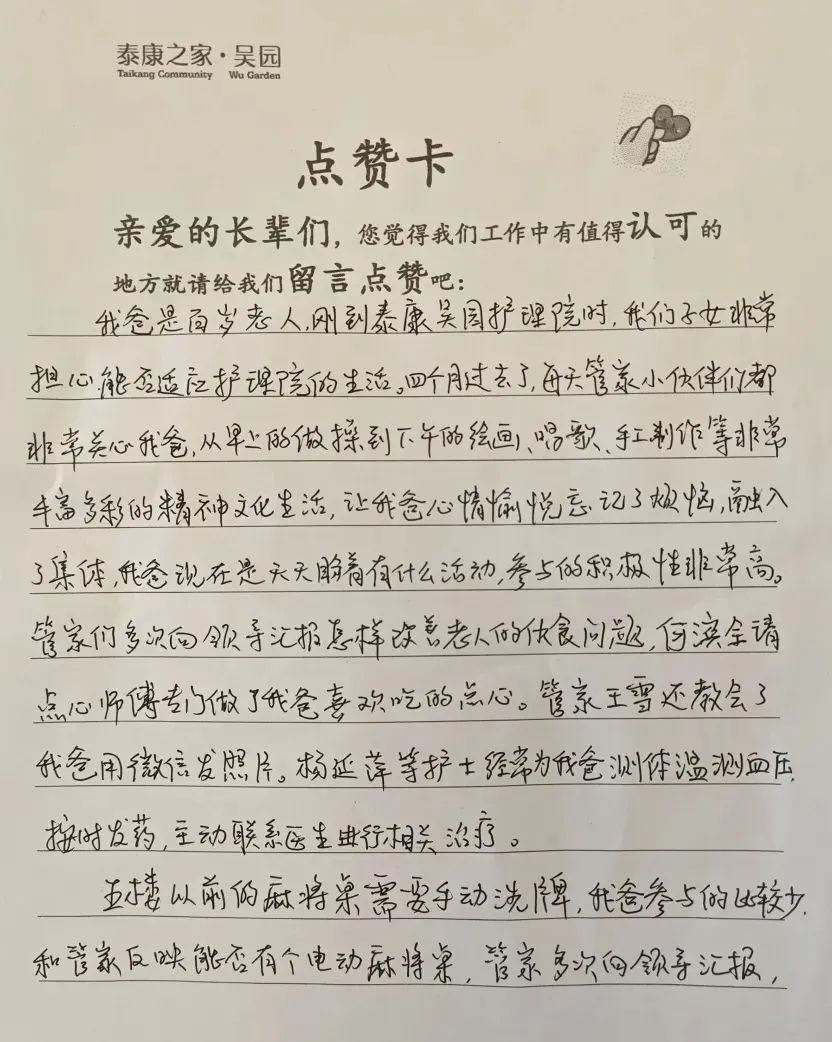 泰康之家·吴园
Taikang Community Wu Garden
点赞卡
亲爱的长辈们，您觉得我们工作中有值得认可的
地方就请给我们留言点赞吧：
我爸是百岁老人，刚到泰康吴园护理院时，我们子女非常
担心能否适应护理院的生活。四个月过去了，每天管家小伙伴们都
非常关心我爸，从早上的做操到下午的绘画、唱歌、手工制作等非常
丰富多彩的精神文化生活，让我爸心情愉悦忘记了烦恼，融入
了集体，我爸现在是天天盼着有什么活动，参与的积极性非常高。
管家们多次向领导汇报怎样改善老人的伙食问题，何滨全请
点心师傅专门做了我爸喜欢吃的点心。管家王雪还教会了
我爸用微信发照片。杨延萍等护士经常为我爸测体温测血压，
按时发药，主动联系医生进行相关治疗。
五楼以前的麻将桌需要手动洗牌，我爸参与的比较少，
和管家反映能否有个电动麻将桌，管家多次向领导汇报，